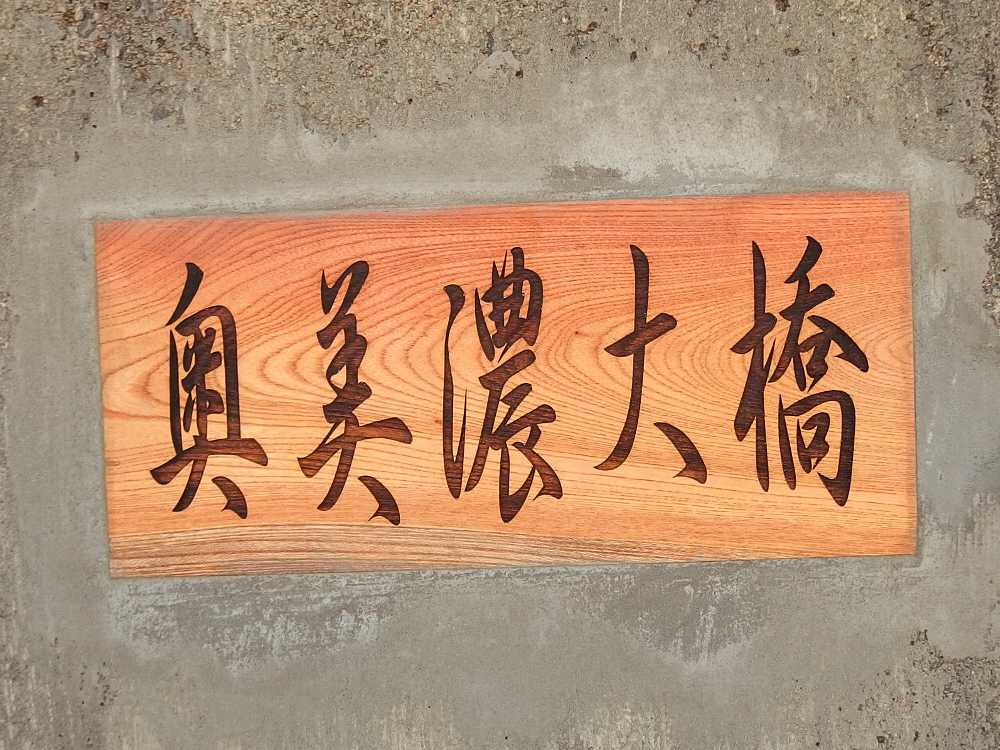 奥美濃大橋